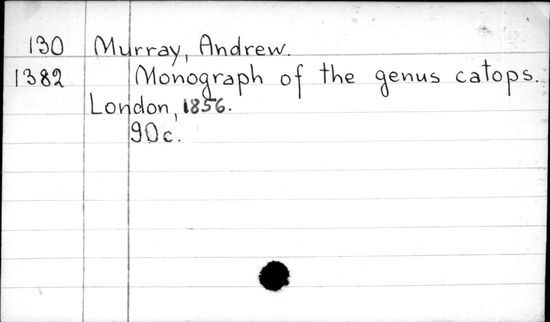 130 Murray, Andrew.
1382 Monograph of the genus catops.
London, 1856.
90c.